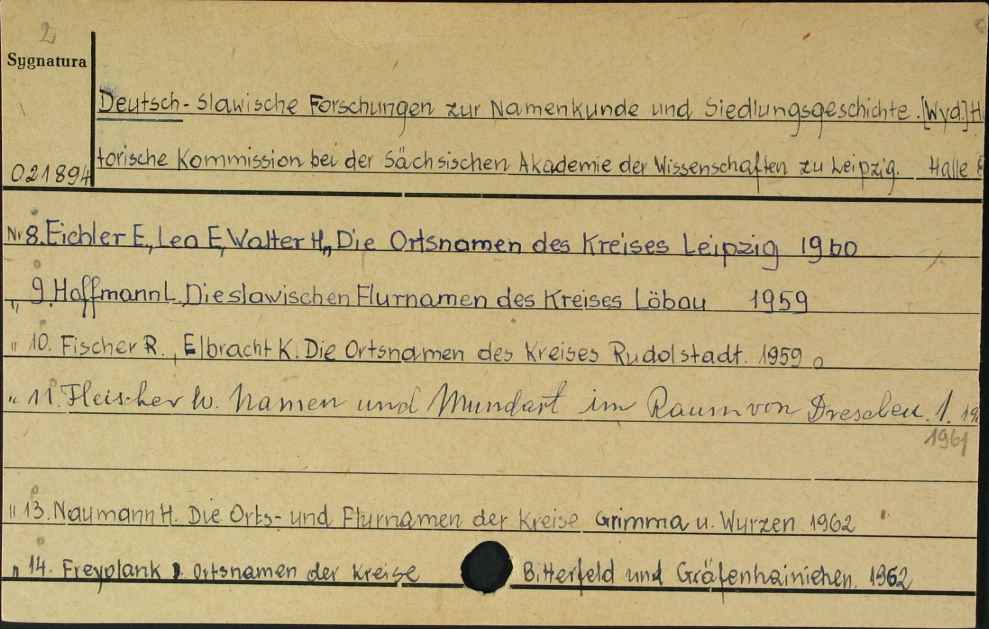 2
Sygnatura
Deutsch-Slawische Forschungen zur Namenkunde und Siedlungsgeschichte. [Wyd.] H
021894 torische Kommission bei der Sächsischen Akademie der Wissenschaften zu Leipzig. Halle
Nr 8. Eichler E., Lea E, Walter H., Die Ortsnamen des Kreises Leipzig 1960
" 9. Hoffmann L. Die slawischen Flurnamen des Kreises Löbau 1959
" 10. Fischer R., Elbracht K. Die Ortsnamen des Kreises Rudolstadt. 1959
" 11. Fleischer W. Namen und Mundart im Raum von Dresden. 1. 19
1961
" 13. Naumann H. Die Orts- und Flurnamen der Kreise Grimma u. Wurzen 1962
" 14. Freydank D. Ortsnamen der Kreise Bitterfeld und Gräfenhainichen. 1962